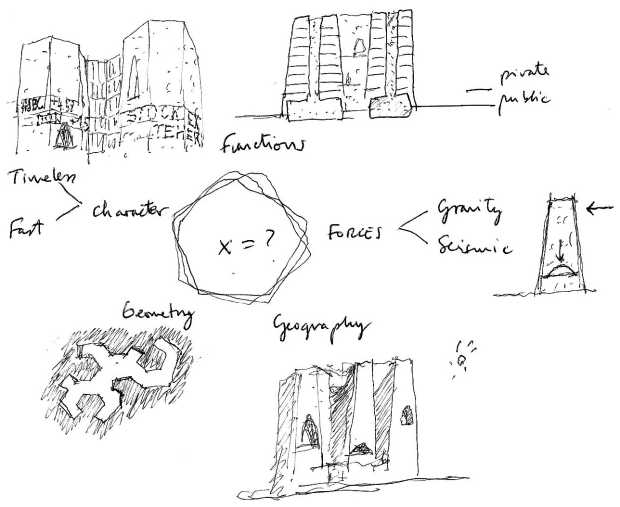 STOCK EX
TEHER
private
public
Functions
Timeless
Fast
character
x = ?
FORCES
Gravity
Seismic
Geometry
Geography